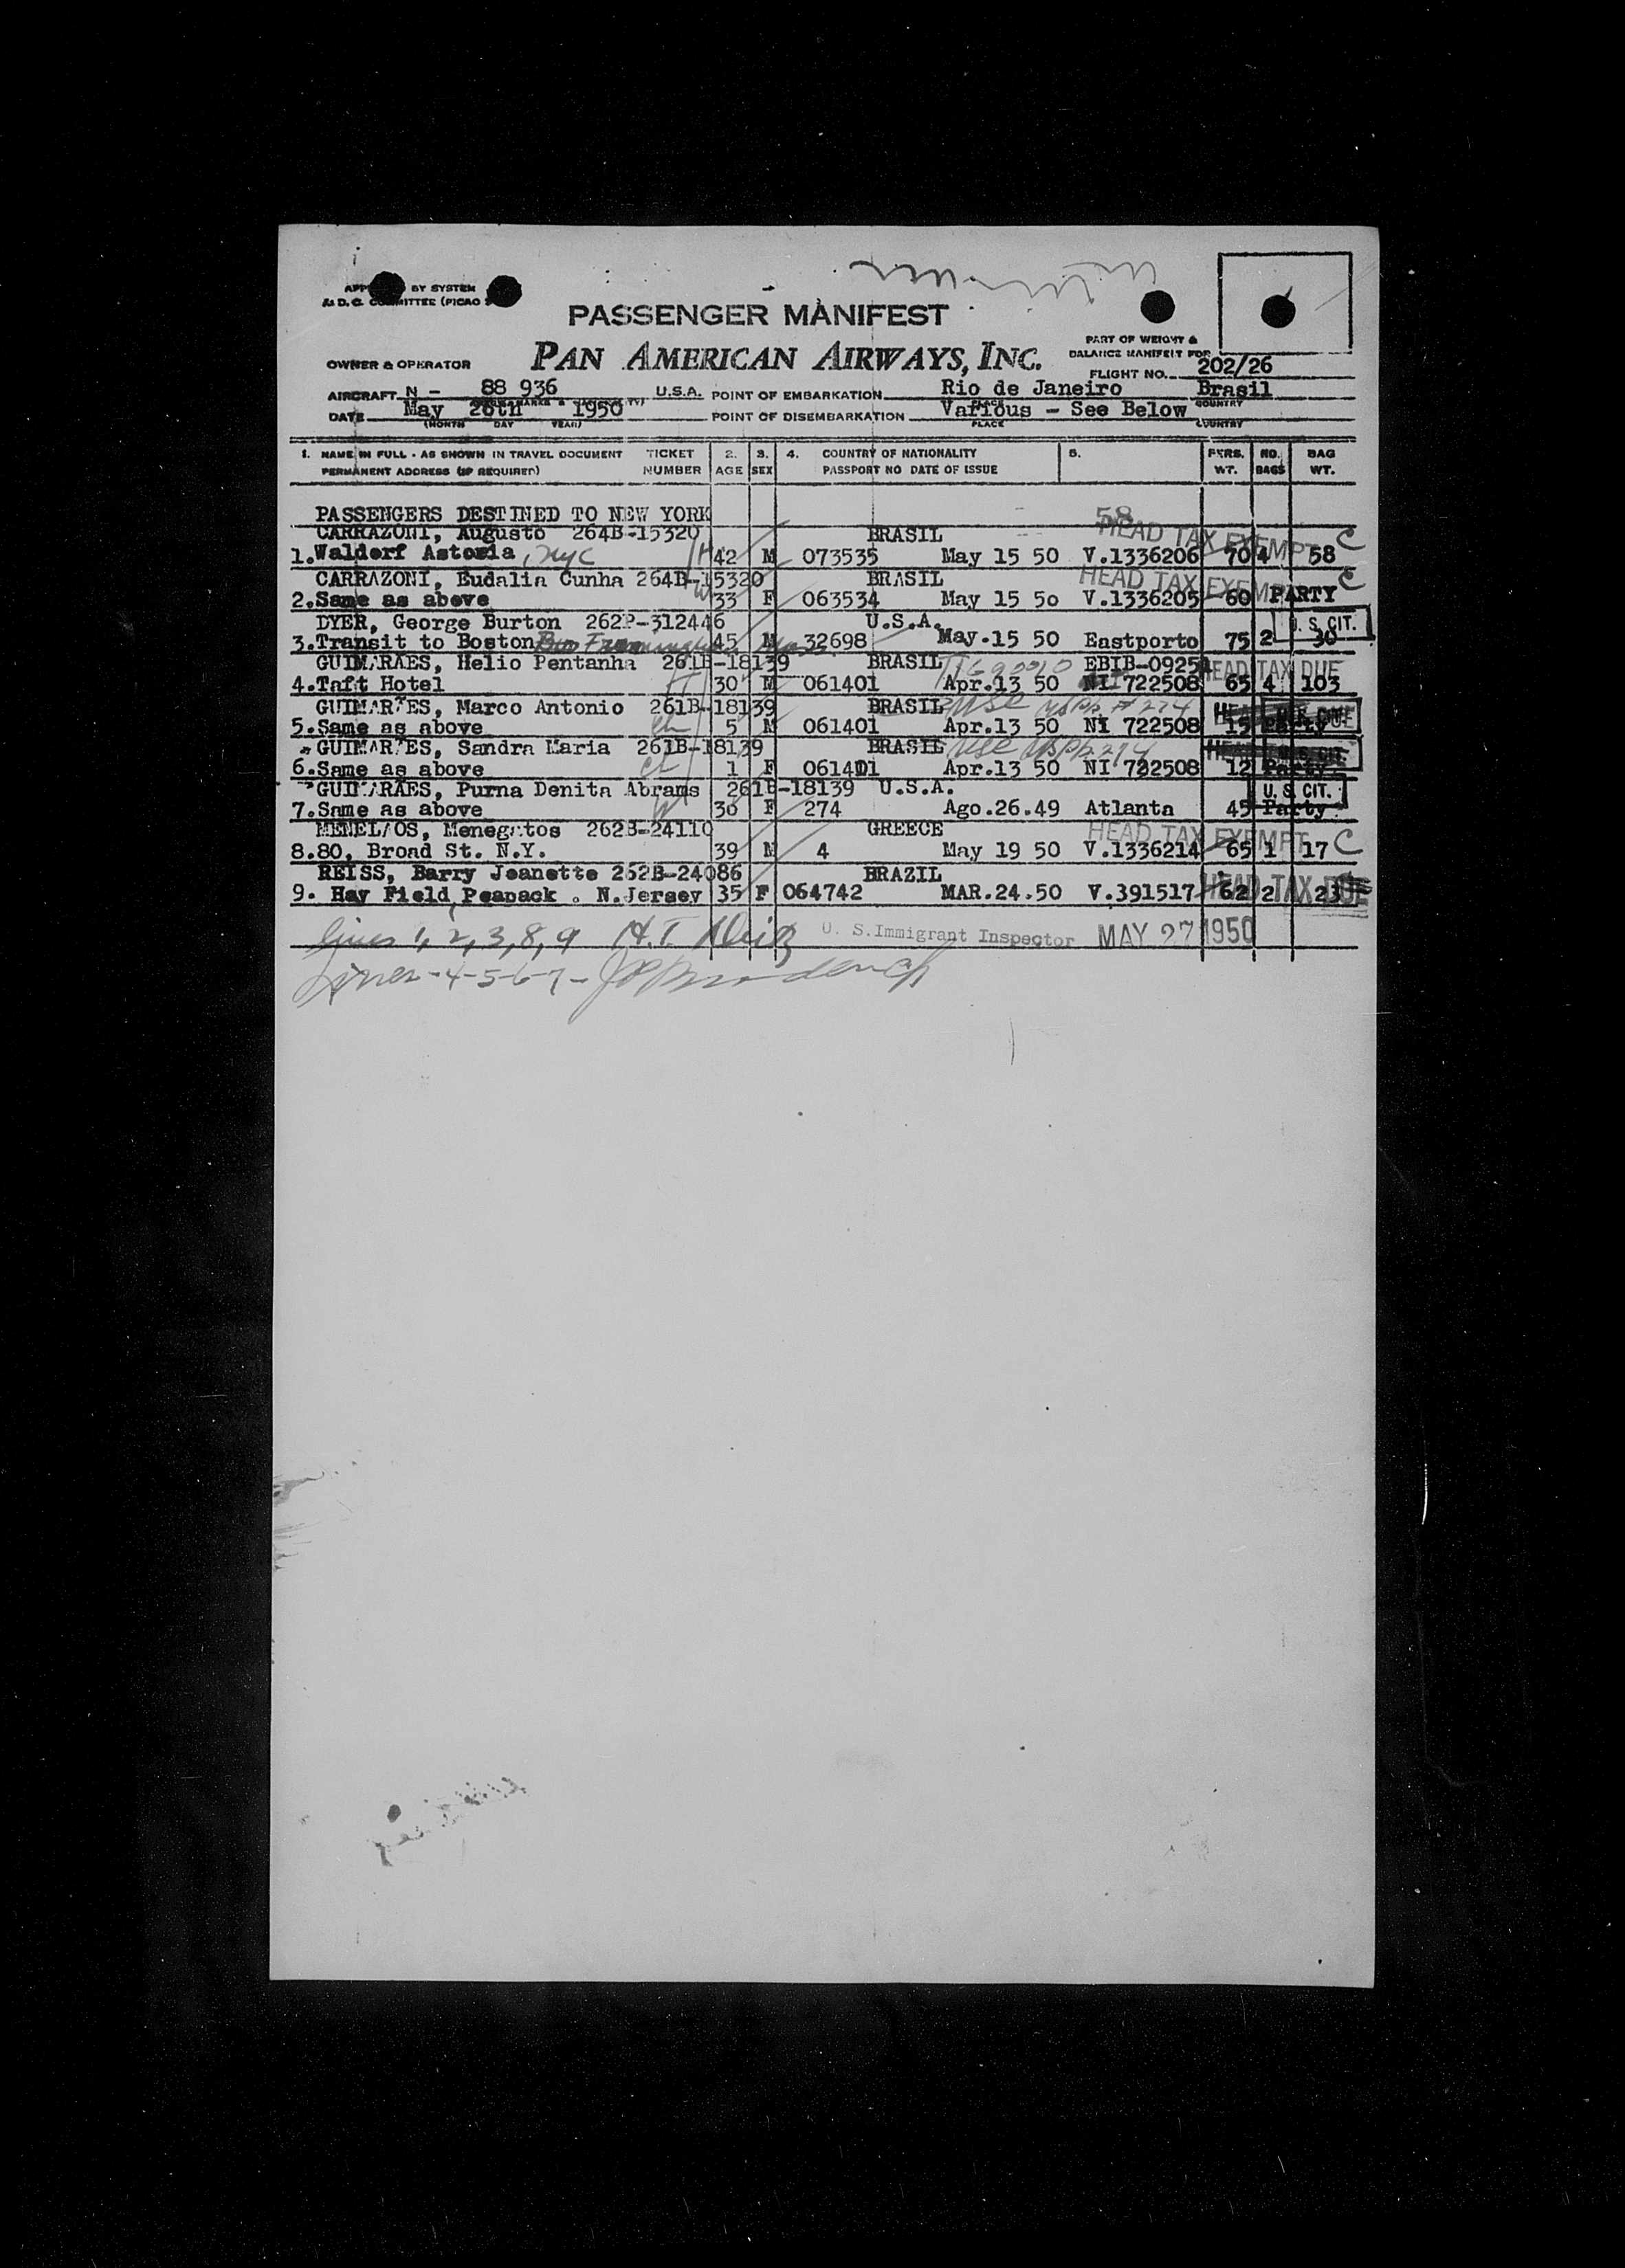 PASSENGER MANIFEST
PAN AMERICAN AIRWAYS, INC.
PART OF WEIGHT &
BALANCE MANIFEST FOR
OWNER & OPERATOR
FLIGHT NO. 202/26
AIRCRAFT N - 88 936 U.S.A. POINT OF EMBARKATION Rio de Janeiro Brasil
DATE May 26th 1950 POINT OF DISEMBARKATION Various - See Below
(MONTH DAY YEAR) PLACE COUNTRY
1. NAME IN FULL - AS SHOWN IN TRAVEL DOCUMENT TICKET 2. 3. 4. COUNTRY OF NATIONALITY 5. PERS. NO. BAG
PERMANENT ADDRESS (IF REQUIRED) NUMBER AGE SEX PASSPORT NO DATE OF ISSUE WT. BAGS WT.
PASSENGERS DESTINED TO NEW YORK 58
CARRAZONI, Augusto 264B-15320 BRASIL HEAD TAX EXEMPT C
1. Waldorf Astoria, NYC H 42 M 073535 May 15 50 V.1336206 70 4 58
CARRAZONI, Eudalia Cunha 264B-15320 BRASIL HEAD TAX EXEMPT C
2. Same as above W 33 F 063534 May 15 5o V.1336205 60 PARTY
DYER, George Burton 262P-312446 U.S.A. U. S. CIT.
3. Transit to Boston 45 M 32698 May.15 50 Eastporto 75 2 30
GUIMARAES, Helio Pentanha 261B-18139 BRASIL EBIB-09251 HEAD TAX DUE
4. Taft Hotel 30 M 061401 Apr.13 50 NI 722508 65 4 103
GUIMARAES, Marco Antonio 261B-18139 BRASIL
5. Same as above ch 5 M 061401 Apr.13 50 NI 722508 15 Party
GUIMARAES, Sandra Maria 261B-18139 BRASIL
6. Same as above ch 1 F 061401 Apr.13 50 NI 722508 12 Party
GUIMARAES, Purna Denita Abrams 261B-18139 U.S.A. U. S. CIT.
7. Same as above W 30 F 274 Ago.26.49 Atlanta 45 Party
MENELAOS, Menegatos 262B-24110 GREECE HEAD TAX EXEMPT
8. 80, Broad St. N.Y. 39 M 4 May 19 50 V.1336214 65 1 17 C
REISS, Barry Jeanette 262B-24086 BRAZIL
9. Hay Field, Peapack . N.Jersey 35 F 064742 MAR.24.50 V.391517 62 2 23 HEAD TAX DUE
Lines 1, 2, 3, 8, 9 U. S. Immigrant Inspector MAY 27 1950
Lines - 4-5-6-7 -